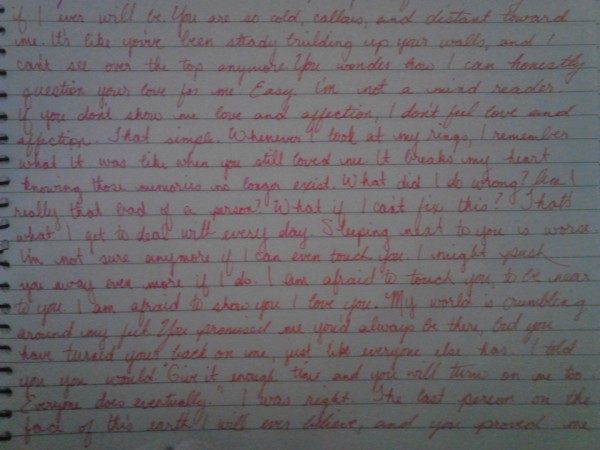 if I ever will be. You are so cold, callous, and distant toward
me. It's like you've been steady building up your walls, and I
can't see over the top anymore. You wonder how I can honestly
question your love for me. Easy. I'm not a mind reader
if you don't show me love and affection, I don't feel love and
affection. That simple. Whenever I look at my rings, I remember
what it was like when you still loved me. It breaks my heart
knowing those memories no longer exist. What did I do wrong? Am I
really that bad of a person? What if I can't fix this? That's
what I get to deal with every day. Sleeping next to you is worse.
I'm not sure anymore if I can even touch you. I might push
you away even more if I do. I am afraid to touch you, to be near
to you. I am afraid to show you I love you. My world is crumbling
around my feet. You promised me you'd always be there, but you
have turned your back on me, just like everyone else has. I told
you you would "Give it enough time and you will turn on me too.
Everyone does eventually." I was right. The last person on the
face of this earth I will ever believe, and you proved me